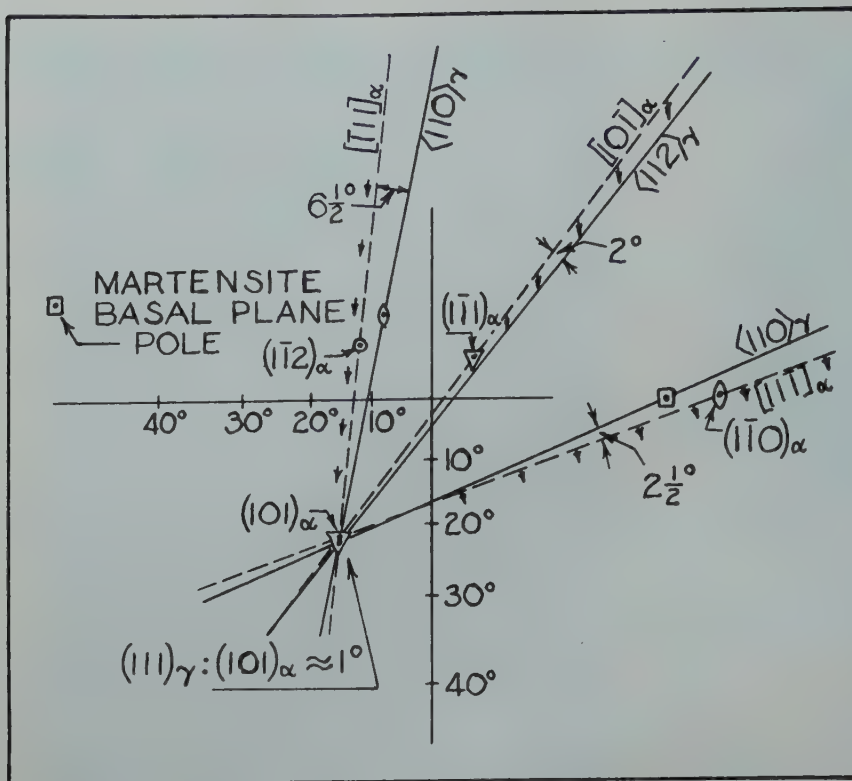 [1̄11]α
⟨110⟩γ
[101̄]α
⟨112⟩γ
6 1/2°
2°
MARTENSITE
BASAL PLANE
POLE
(11̄1)α
(11̄2)α
⟨110⟩γ
[111̄]α
(11̄0)α
2 1/2°
40° 30° 20° 10°
10°
20°
30°
40°
(101)α
(111)γ:(101)α≈1°